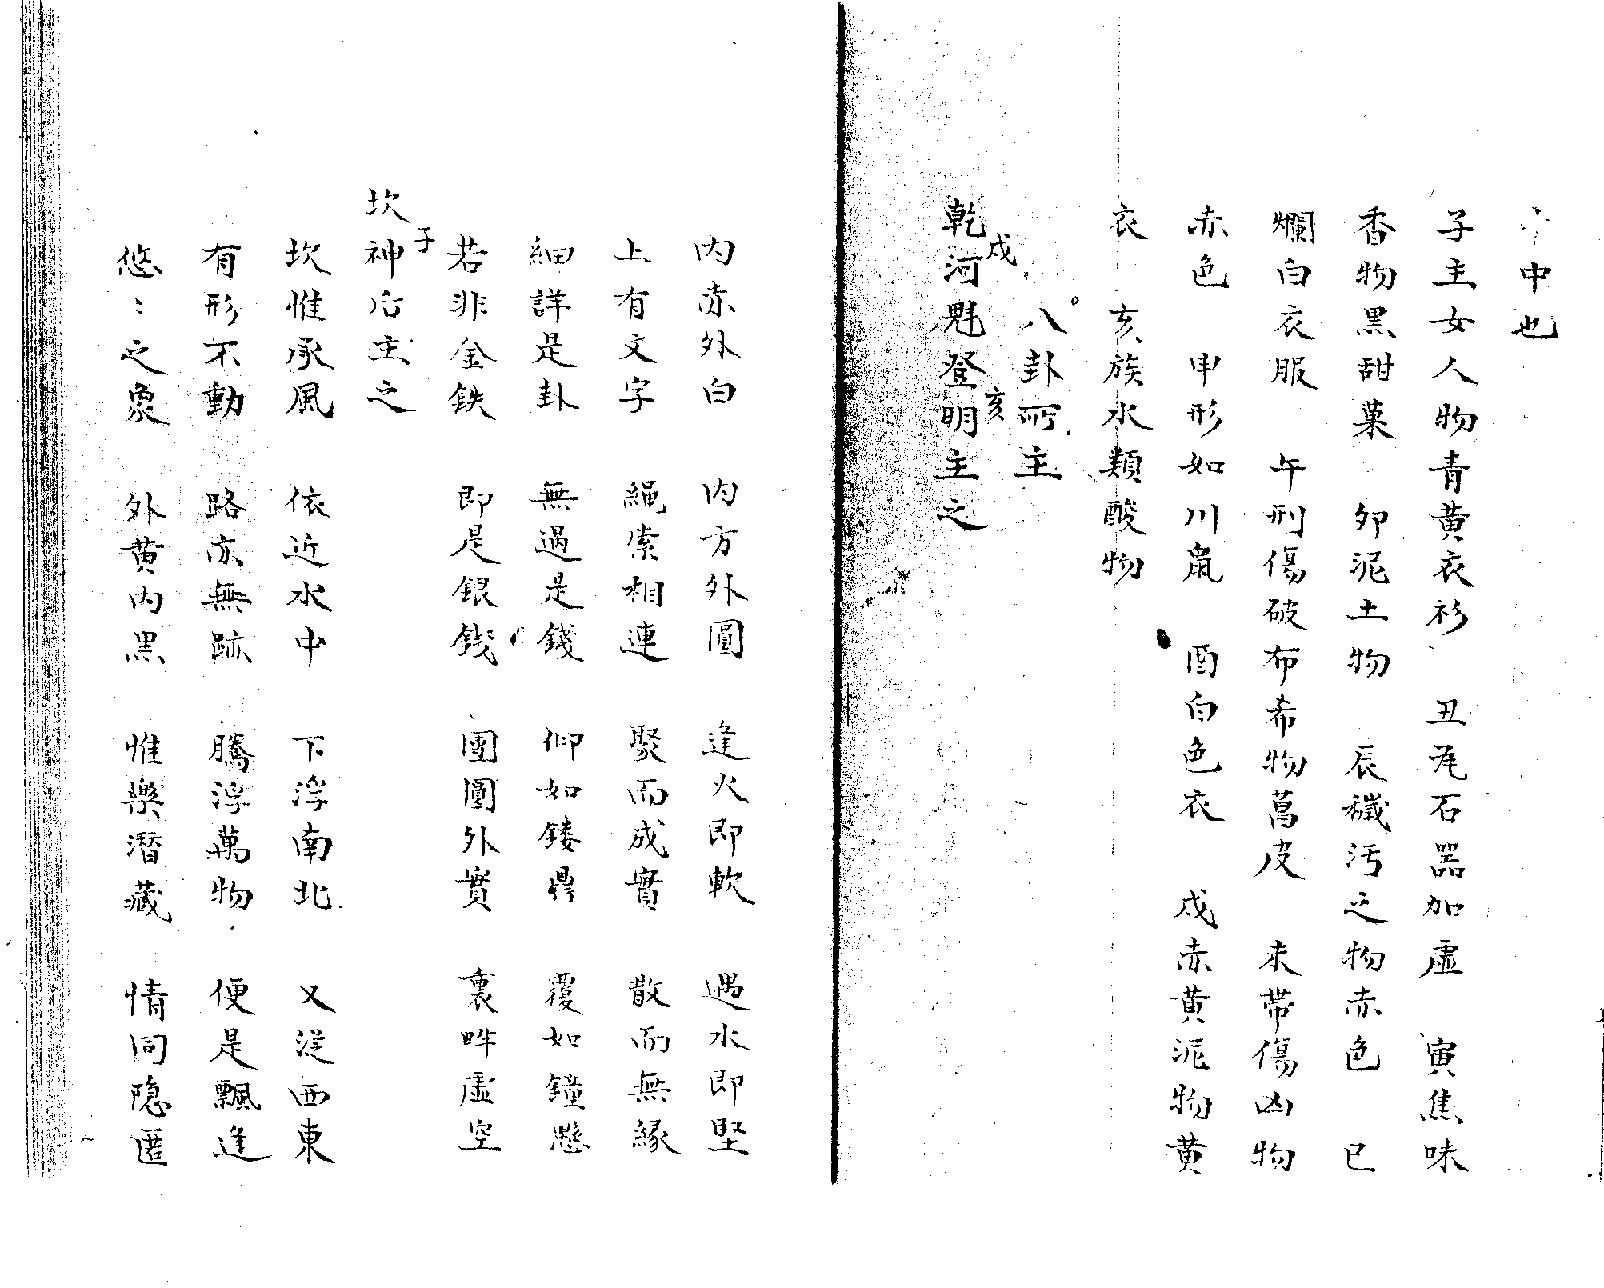 中也
子主女人物青黄衣衫 丑瓦石器加虛 寅焦味
香物黑甜菓 卯泥土物 辰穢污之物赤色 巳
爛白衣服 午刑傷破布希物萬皮 未帶傷凶物
赤色 申形如川鼠 酉白色衣 戌赤黄泥物黄
衣 亥族水類酸物
八卦所主
乾河魁戌登明亥主之
内赤外白 内方外圓 逢火即軟 遇水即堅
上有文字 繩索相連 聚而成實 散而無緣
細詳是卦 無過是錢 仰如鏤鼎 覆如鐘懸
若非金鉄 即是銀錢 團圓外實 裏畔虛空
坎神后子主之
坎惟承風 依近水中 下浮南北 又從西東
有形不動 路亦無跡 騰浮萬物 便是飄逢
悠〻之象 外黄内黑 惟樂潛藏 情同隐匿